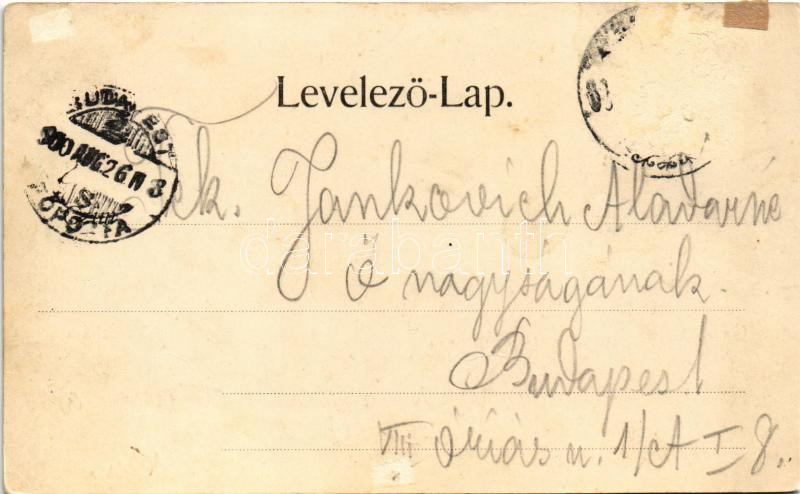 Levelező-Lap.
BUDAPEST
900 AUG 26 N 3
FŐPOSTA
Tek. Jankovich Aladárné
ő nagyságának.
Budapest
VIII Óriás u. 1/A I 8.
darabanth